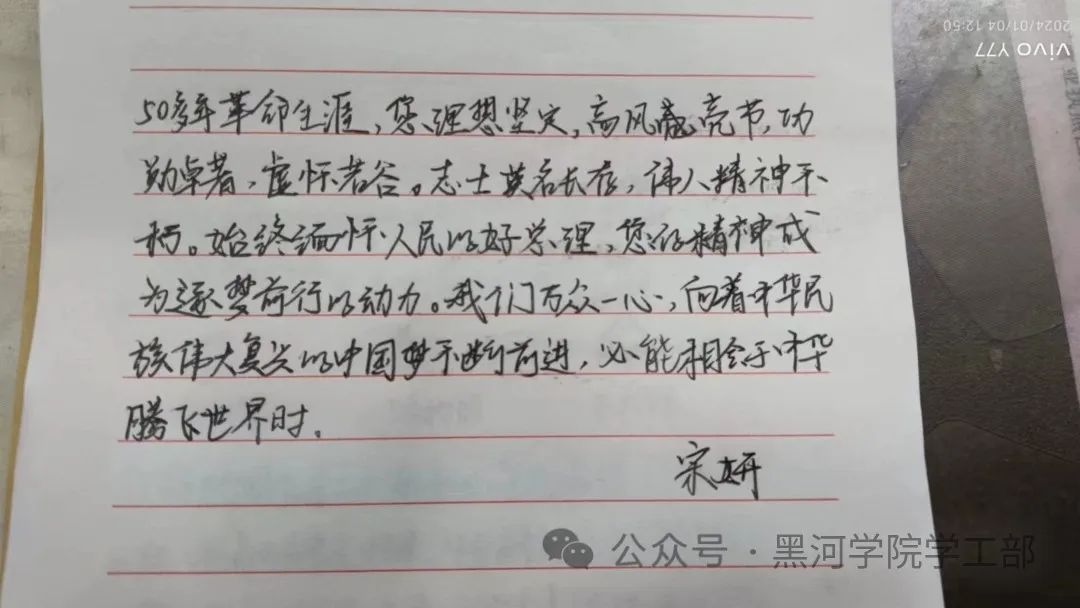 50多年革命生涯，您理想坚定，高风亮节，功
勋卓著，虚怀若谷。志士英名长存，伟人精神不
朽。始终缅怀人民的好总理，您的精神成
为逐梦前行的动力。我们万众一心，向着中华民
族伟大复兴的中国梦不断前进，必能相会于中华
腾飞世界时。
宋妍
公众号·黑河学院学工部
vivo Y77
2024/01/04 12:50